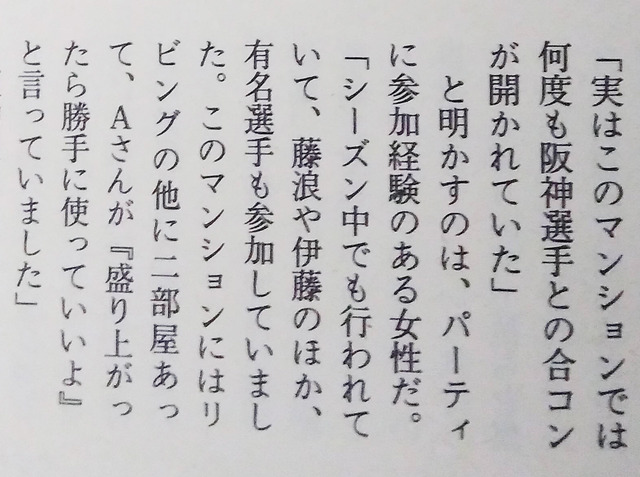 「実はこのマンションでは
何度も阪神選手との合コン
が開かれていた」
と明かすのは、パーティ
に参加経験のある女性だ。
「シーズン中でも行われて
いて、藤浪や伊藤のほか、
有名選手も参加していまし
た。このマンションにはリ
ビングの他に二部屋あっ
て、Aさんが『盛り上がっ
たら勝手に使っていいよ』
と言っていました」